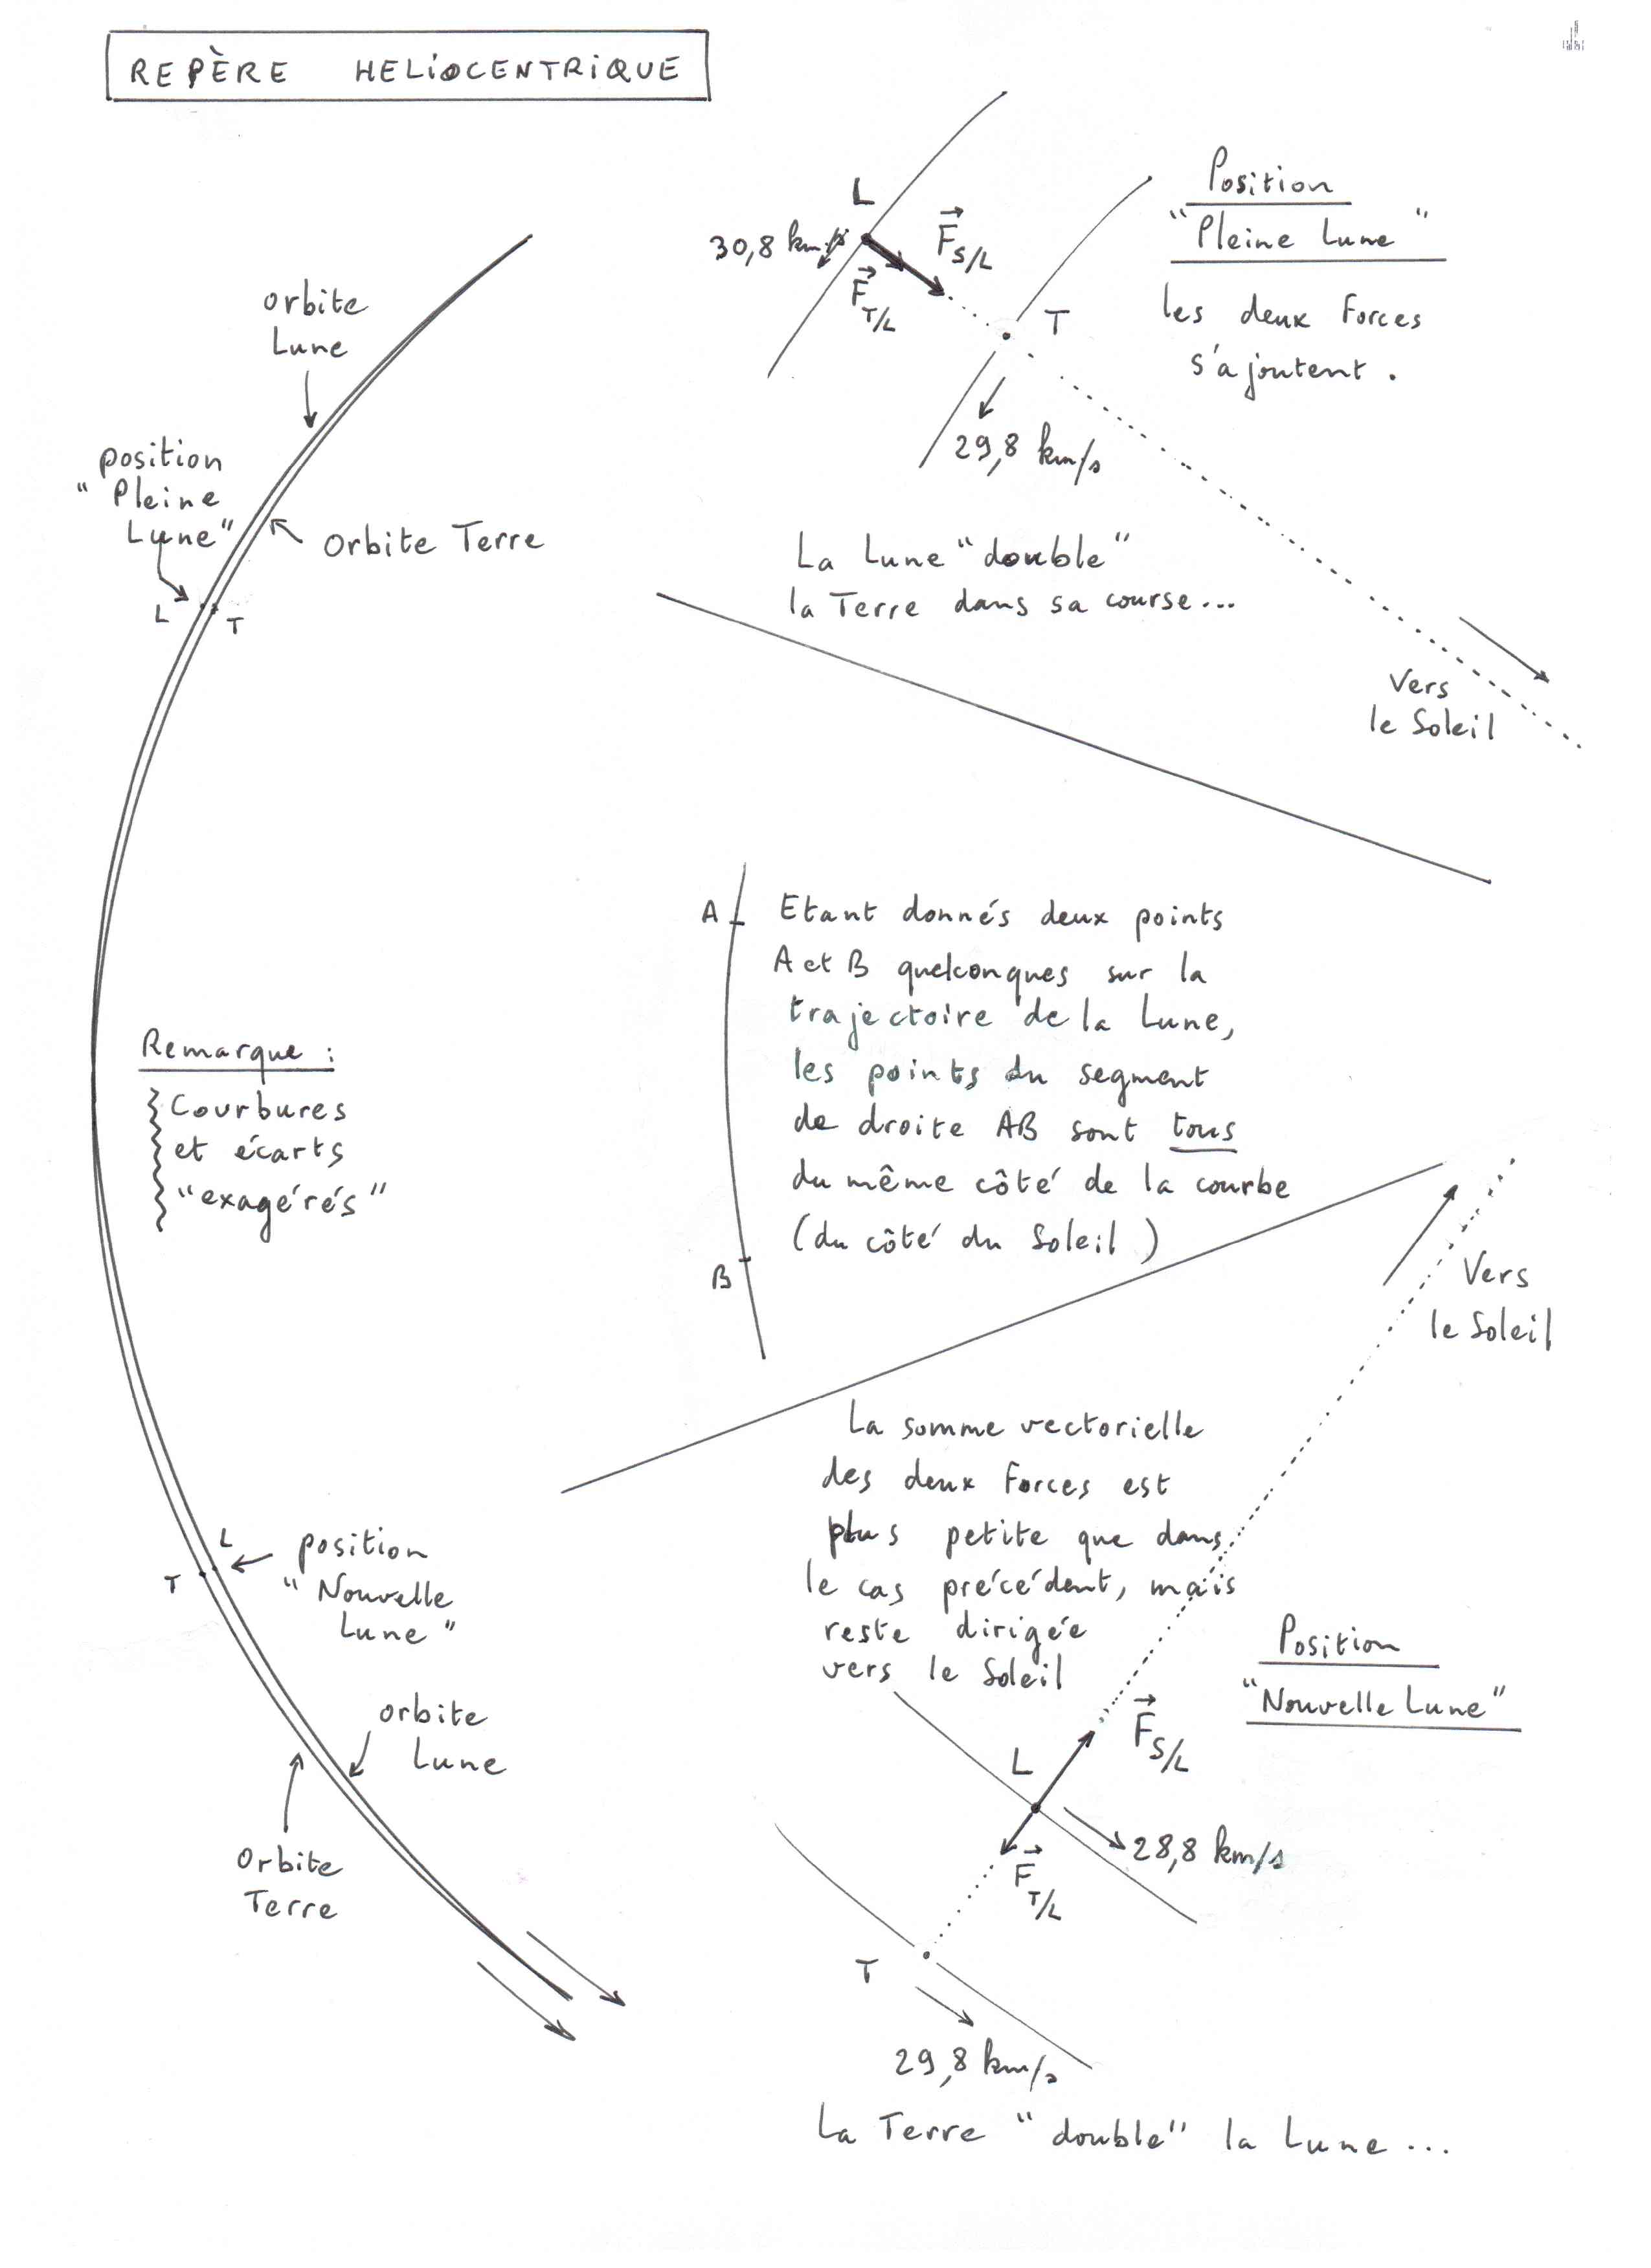 REPÈRE HELIOCENTRIQUE
orbite
Lune
position
"Pleine
Lune"
Orbite Terre
L
T
Remarque :
Courbures
et écarts
"exagérés"
L
T
position
"Nouvelle
Lune"
orbite
Lune
Orbite
Terre
L
30,8 km/s
F S/L
F T/L
T
29,8 km/s
Position
"Pleine Lune"
les deux Forces
s'ajoutent.
La Lune "double"
la Terre dans sa course...
Vers
le Soleil
A
B
Etant donnés deux points
A et B quelconques sur la
trajectoire de la Lune,
les points du segment
de droite AB sont tous
du même côté de la courbe
(du côté du Soleil)
Vers
le Soleil
La somme vectorielle
des deux Forces est
plus petite que dans
le cas précédent, mais
reste dirigée
vers le Soleil
Position
"Nouvelle Lune"
F S/L
L
28,8 km/s
F T/L
T
29,8 km/s
La Terre "double" la Lune...